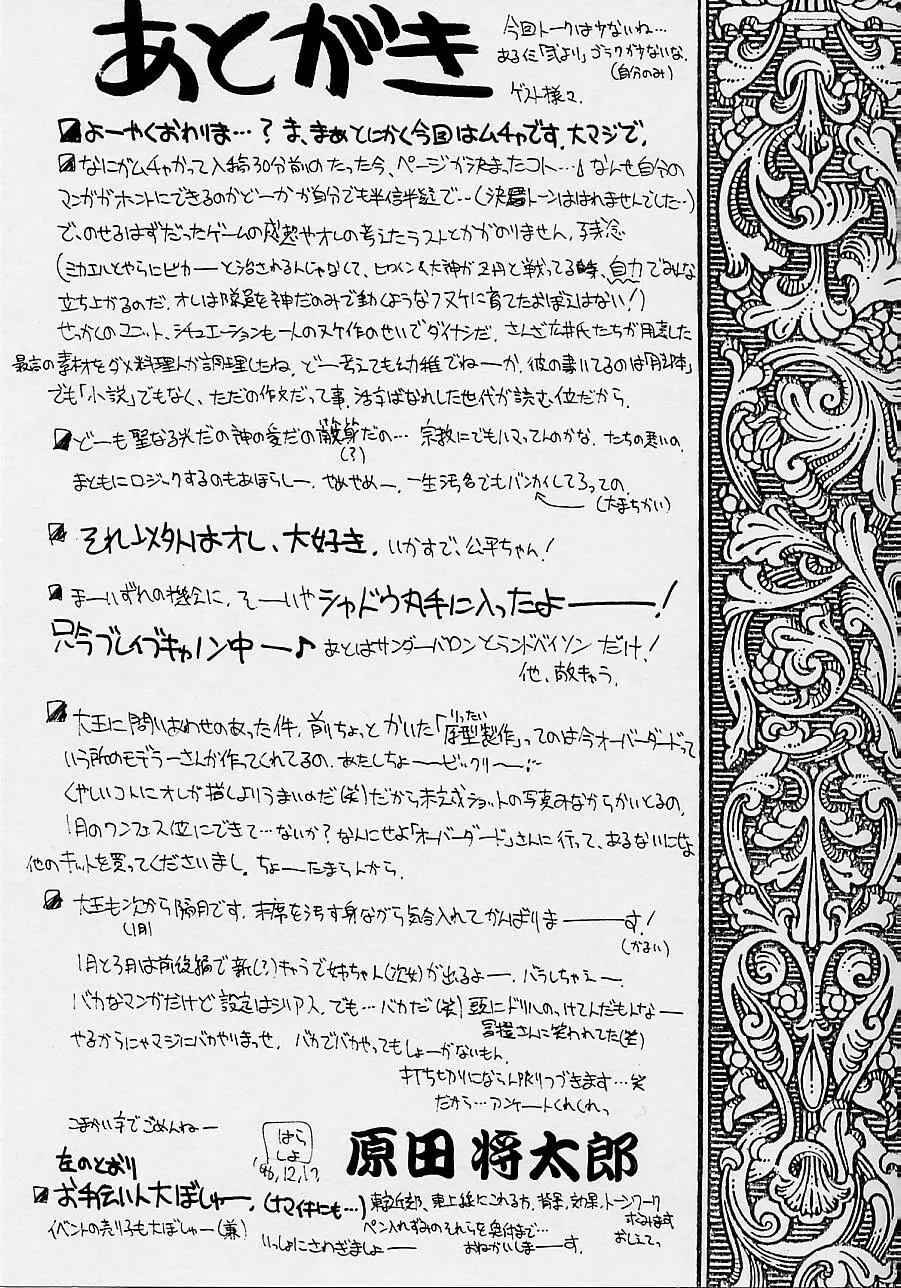 あとがき
今回トークは少ないね…
あるに「弐より」ゴラクが少ないな.
(自分のみ)
ゲスト様々.
よーやくおわりま…? ま、まぁとにかく今回はムチャです.大マジで.
なにがムチャかって入稿30分前のたった今、ページが決まったコト…♪なんせ自分の
マンガがホントにできるのかどーかが自分でも半信半疑で…(決着トーンははれませんでした…)
で、のせるはずだったゲームの感想やオレの考えたラストとかがのりません.残念
(ミカエルとやらにピカーーと治されるんじゃなくて、ヒロイン&大神がエ円と戦ってる時、自力でみんな
立ち上がるのだ.オレは隊員を神だのみで動くようなフヌケに育てたおぼえはない!)
せっかくのユニット、シチュエーションも一人のヌケ作のせいでダイナシだ. さんざ広井氏たちが用意した
最高の素材をダメ料理人が調理したね. どー考えても幼稚でねーか. 彼の書いてるのは「脚本」
でも「小説」でもなく、ただの作文だって事. 活字ばなれした世代が読む位だから.
どーも聖なる光だの神の愛だの散華だの… 宗教にでもハマってんのかな. たちの悪いの.
(?)
まともにロジックするのもあほらしー. やめやめー. 一生汚名でもバンカイしてろっての.
(大まちがい)
それ以外はオレ、大好き. いかすで、公平ちゃん!
まーいずれの機会に. そーいやシャドウ丸手に入ったよーーー!
只今ブレイブキャノン中ー♪ あとはサンダーバロンとランドバイソンだけ!
他、敵キャラ.
大王に問いあわせのあった件. 前ちょっとかいた「原型製作」ってのは今オーバーダードって
りったい
いう所のモデラーさんが作ってくれてるの. あたしちょーービックリーー
くやしいコトにオレが描くよりうまいのだ(笑)だから未完成ショットの写真みながらかいとるの.
1月のワンフェス位にできて…ないか? なんにせよ「オーバーダード」さんに行って、あるないにせよ
他のキットを買ってくださいまし. ちょーーたまらんから.
大王も次から隔月です. 末席を汚す身ながら気合入れてがんばりまーーーす!
(1月)
(かるい)
1月と3月は前後編で新(?)キャラで姉ちゃん(次女)が出るよーー. バラしちゃえーー
バカなマンガだけど設定はシリアス. でも… バカだ(笑) 頭にドリルのっけてんだもんなー
冨樫さんに笑われてた(笑)
やるからにゃマジにバカやりまっせ. バカでバカやってもしょーがないもん.
打ち切りにならん限りつづきます…笑
だから…アンケートくれくれっ
こまかい字でごめんねー
はらしょ
'96,12,17
原田 将太郎
左のとおり
お手伝い人大ぼしゅー. (ナマイキにも…) 東京近郊、東上線にこれる方. 背景,効果,トーンワーク
イベントの売り子も大ぼしゅー(兼)
ペン入れずみのそれらを受付まで…
するみます
おしえてっ
いっしょにさわぎましょーー
おねがいしまーーす.